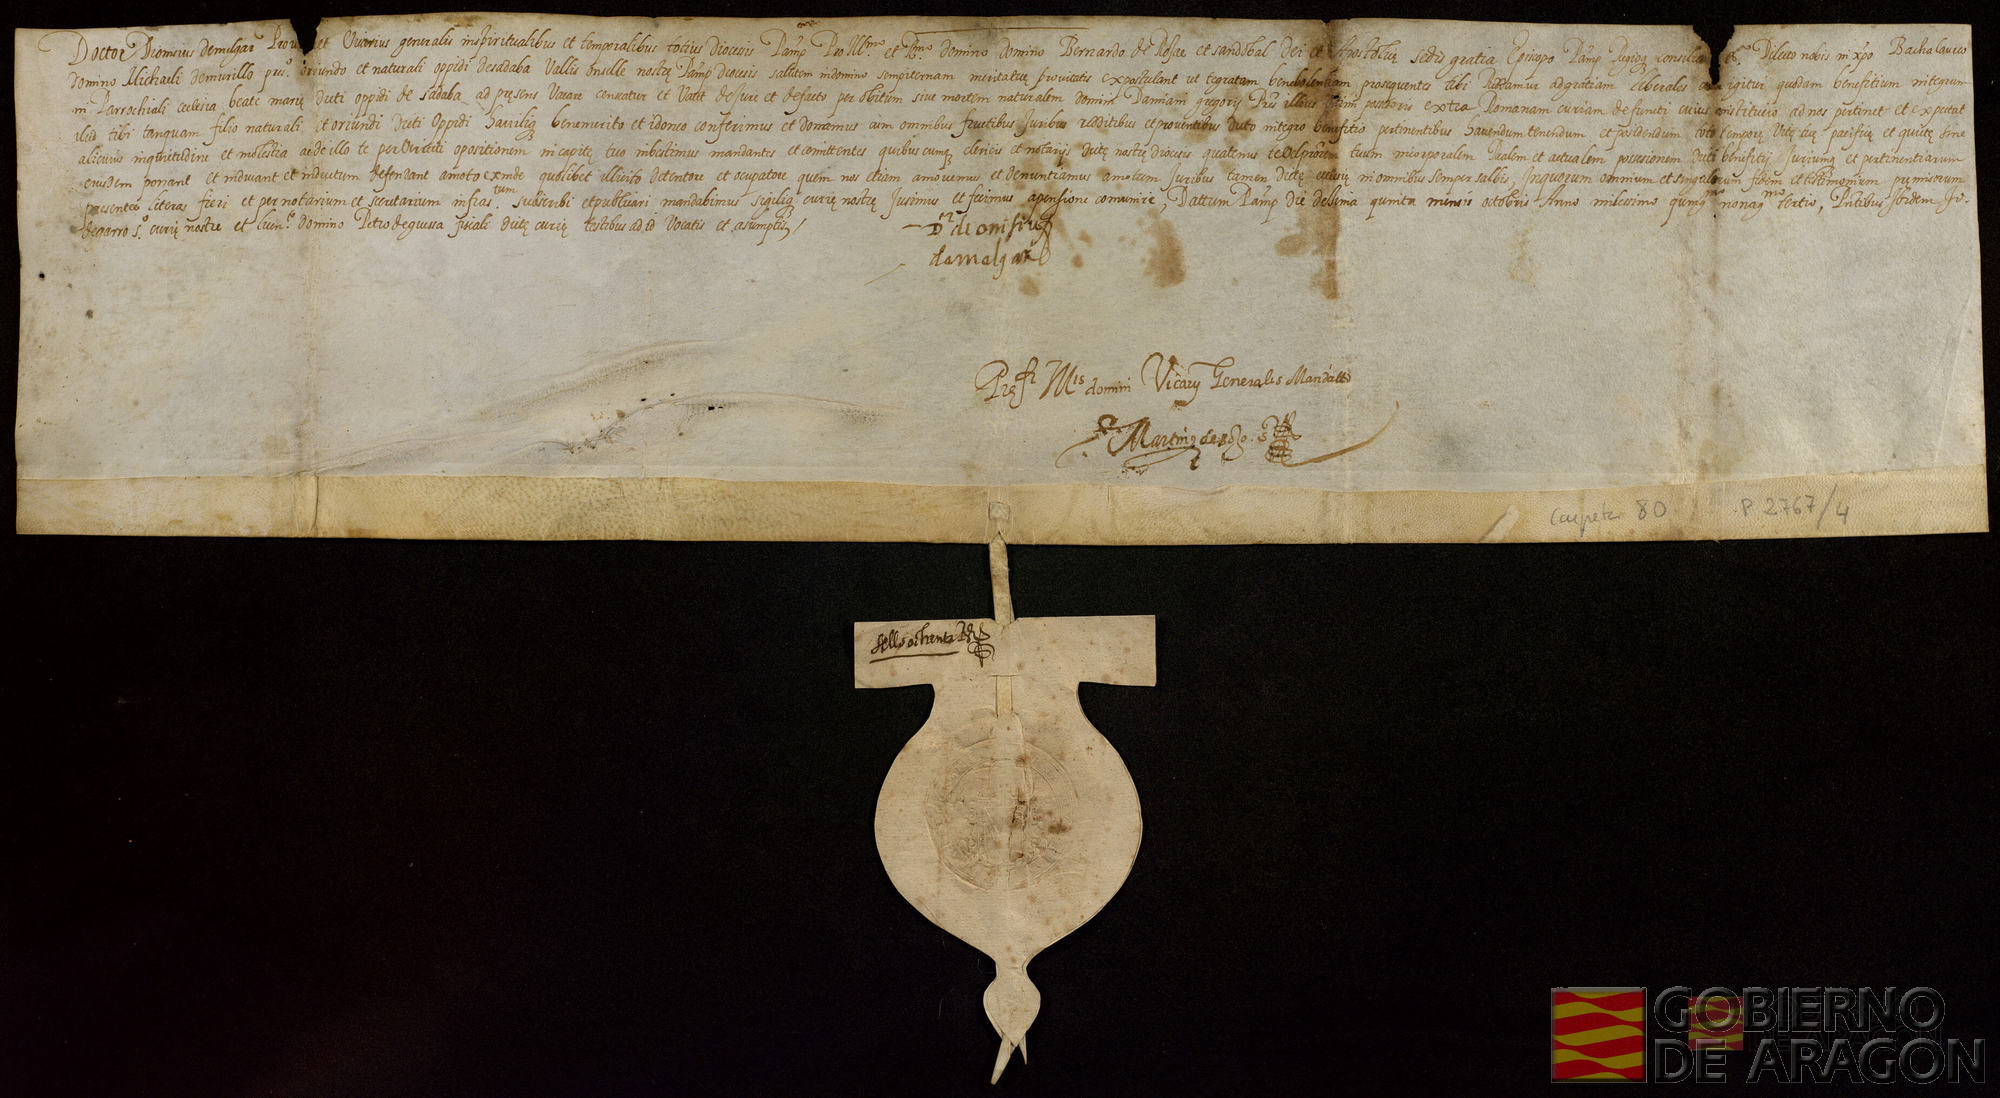 Doctor Dionisius de melgar Provi et Vicarius generalis in spiritualibus et temporalibus tocius Diocesis Pamp Pro Illmo et Rmo domino domino Bernardo de Rojas et sandobal Dei et Apostolicę sedis gratia Episcopo Pamp Regięq consilia etc. Dilecto nobis in xpo Bachalaureo
domino Michaeli de murillo presº. oriundo et naturali oppidi de sadaba Vallis onselle nostrę Pamp diocesis salutem in domino sempiternam meritatuę provitatis expostulant ut te gratam benebolentiam prosequentes tibi Reddamur ad gratiam liberales cum igitur quodam benefitium integrum
in Parrochiali ecclesia beate marię dicti oppidi de sadaba ad pręsens Vacare censeatur et Vacet de Jure et de facto per obitum sive mortem naturalem domini Damiani gregoris illius etiam possesoris extra Romanam curiam defuncti cuius institutio ad nos pertinet et expectat
illud tibi tanquam filio naturali et oriundi dicti Oppidi benemerito et idoneo conferimus et donamus cum omnibus fructibus Juribus redditibus et proventibus dicto integro benefitio pertinentibus havendum tenendum et posidendum toto tempore Vitę tuę pacifice et quietę sine
alicuius inquietudine et molestia ac de illo te per birreti opositionem in capitę tuo inbestimus mandantes et comittentes quibuscumq clericis et notarijs dictę nostrę diocesis quatenus te Vel procrem tuum in corporalem Realem et actualem possesionem dicti benefitij Juriumq et pertinentiarum
eiusdem ponant et inducant et inductum defendant amoto exinde quolibet illicito detentore et ocupatore quem nos etiam amovemus et denuntiamus amotum Juribus tamen dictę eclesię in omnibus semper salbis, In quorum omnium et singulorum fidem et testimonium pręmisorum
presentes literas fieri et per notarium et secretarium infrastum. subscribi et publicari mandabimus sigiliq curię nostrę Jusimus et fecimus apensione comunire, Dattum Pamp die desima quinta mensis octobris Anno milessimo quingmo nonagmo tertio, Pntibus Ibidem Jo.
de garro sº. curię nostre et licendº. domino Petro de guessa fiscali dictę curię testibus ad id Vocatis et asumptis /
Dr. dionisius
de melgar
Pręfti Mts domini Vicary Generalis Mandato
Martinus de s
sello ochenta Rs
Carpeta 80 P 2767/4
GOBIERNO
DE ARAGON